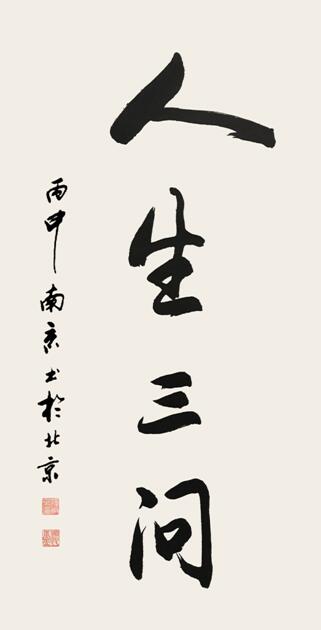 人生三问
丙申南京书于北京